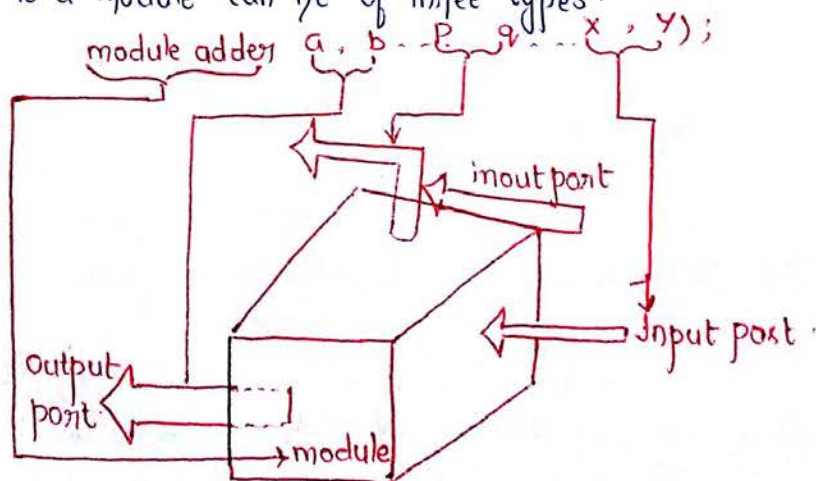 is a module can be of three types
module adder a, b --- p, q --- x, y);
inout port
Input port.
output
port
module